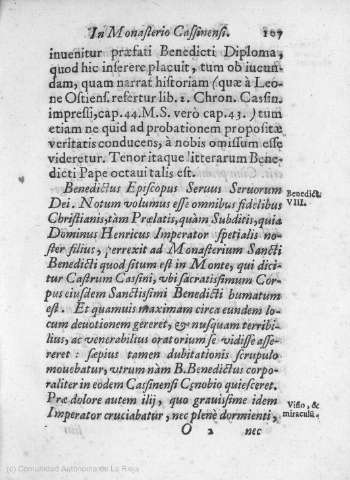 In Monasterio Cassinensi. 107
inuenitur præfati Benedicti Diploma,
quod hic inserere placuit, tum ob iucun-
dam, quam narrat historiam (quæ à Leo-
ne Ostiens. refertur lib. 2. Chron. Cassin.
impressi, cap. 44. M.S. verò cap. 43. ) tum
etiam ne quid ad probationem propositæ
veritatis conducens, à nobis omissum esse
videretur. Tenor itaque litterarum Bene-
dicti Pape octaui talis est.
Benedictus Episcopus Seruus Seruorum
Benedictus
Dei. Notum volumus esse omnibus fidelibus
VIII.
Christianis, tàm Prælatis, quàm Subditis, quia
Dominus Henricus Imperator spetialis no-
ster filius, perrexit ad Monasterium Sancti
Benedicti quod situm est in Monte, qui dici-
tur Castrum Cassini, vbi sacratissimum Cor-
pus eiusdem Sanctissimi Benedicti humatum
est. Et quamuis maximam circa eundem lo-
cum deuotionem gereret, & nusquam terribi-
lius, ac venerabilius oratorium se vidisse asse-
reret : sæpius tamen dubitationis scrupulo
mouebatur, vtrum nàm B. Benedictus corpo-
raliter in eodem Cassinensi Cœnobio quiesceret.
Præ dolore autem ilij, quo grauissime idem
Visio, &
Imperator cruciabatur, nec plenè dormienti,
miraculũ.
O 2 nec
(c) Comunidad Autónoma de La Rioja